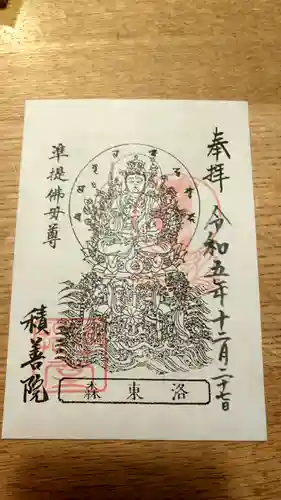 奉拝
令和五年十二月二十七日
準提佛母尊
積善院
洛東森